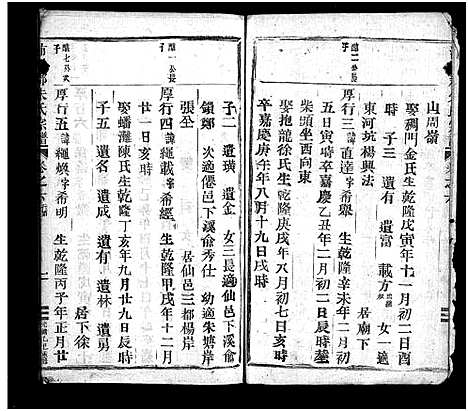 山周嶺
娶礀門金氏生乾隆戊寅年十一月初二日酉
時 子三 遺有 遺富 載方 女一適
東河坑楊興法 居廟下
醮一公長子
厚行三 諱直達 字希舉 生乾隆辛未年二月初
五日寅時卒嘉慶乙丑年二月初二日辰時塟
柴頭坐西向東
娶抱龍徐氏生乾隆庚戌年八月初七日亥時
卒嘉慶庚午年八月十九日戌時
子二 遺璜 遺金 女三長適仙邑下溪俞
鎖鄭 次適僊邑下溪俞秀仕 幼適朱塘岸
張垒 居仙邑三都楊岸
醮一公長子
厚行四 諱繩載 字希經 生乾隆甲戌年十二月
廿一日亥時
娶蟠灘陳氏生乾隆丁亥年九月廿九日辰時
子五 遺名 遺成 遺有 遺林 遺勇
居下徐
醮七公次子
厚行五 諱繩煥 字希明 生乾隆丙子年正月廿
朱氏宗譜 卷之六